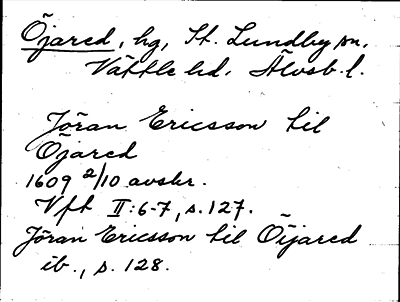 Öjared, hg, St. Lundby sn,
Vättle hd. Älvsb. l.
Jöran Ericsson til
Öjared
1609 2/10 avskr.
Vft II:6-7, s. 127.
Jöran Ericsson til Öijared
ib., s. 128.